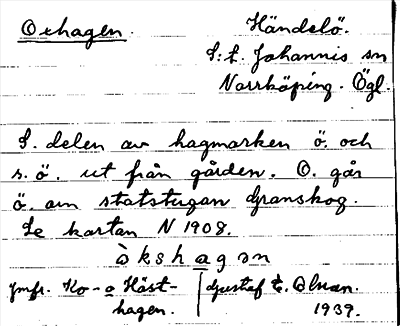 Oxhagen. Händelö.
S:t. Johannis sn
Norrköping. Ögl.
S. delen av hagmarken ö. och
s. ö. ut från gården. O. går
ö. om statstugan Granskog.
Se kartan N 1908.
òkshagən
Jmfr. Ko- o Häst-
hagen.
Gustaf E. Olson.
1939.